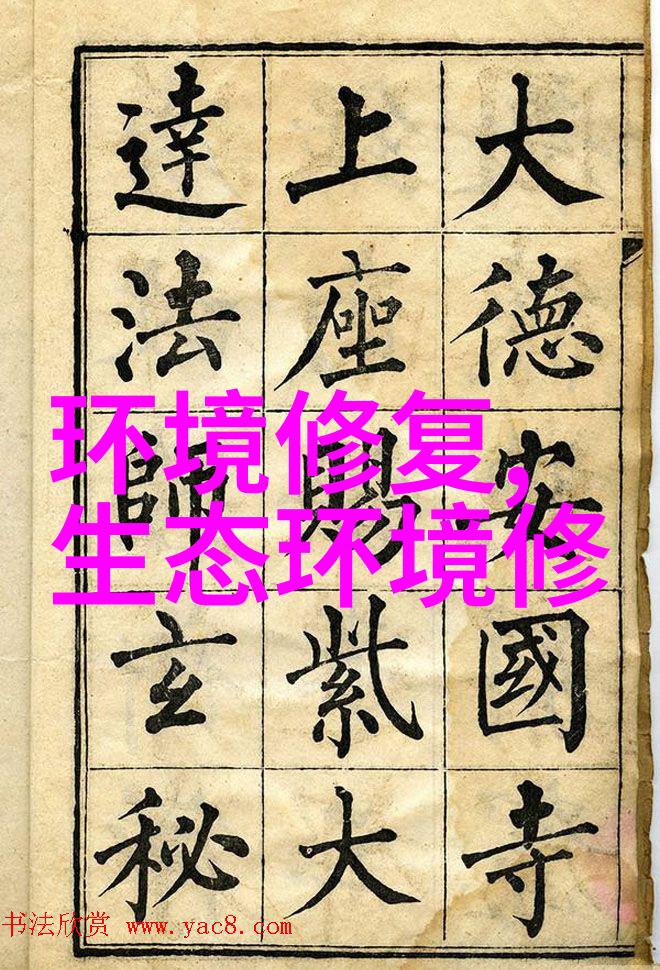 大德安國寺
上座賜紫大
達法師玄秘
环境修复，
生态环境修
书法欣赏 www.yac8.com